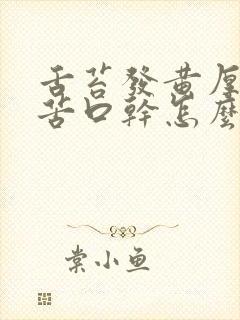 舌苔發黃厚
苦口幹怎麼
棠小魚